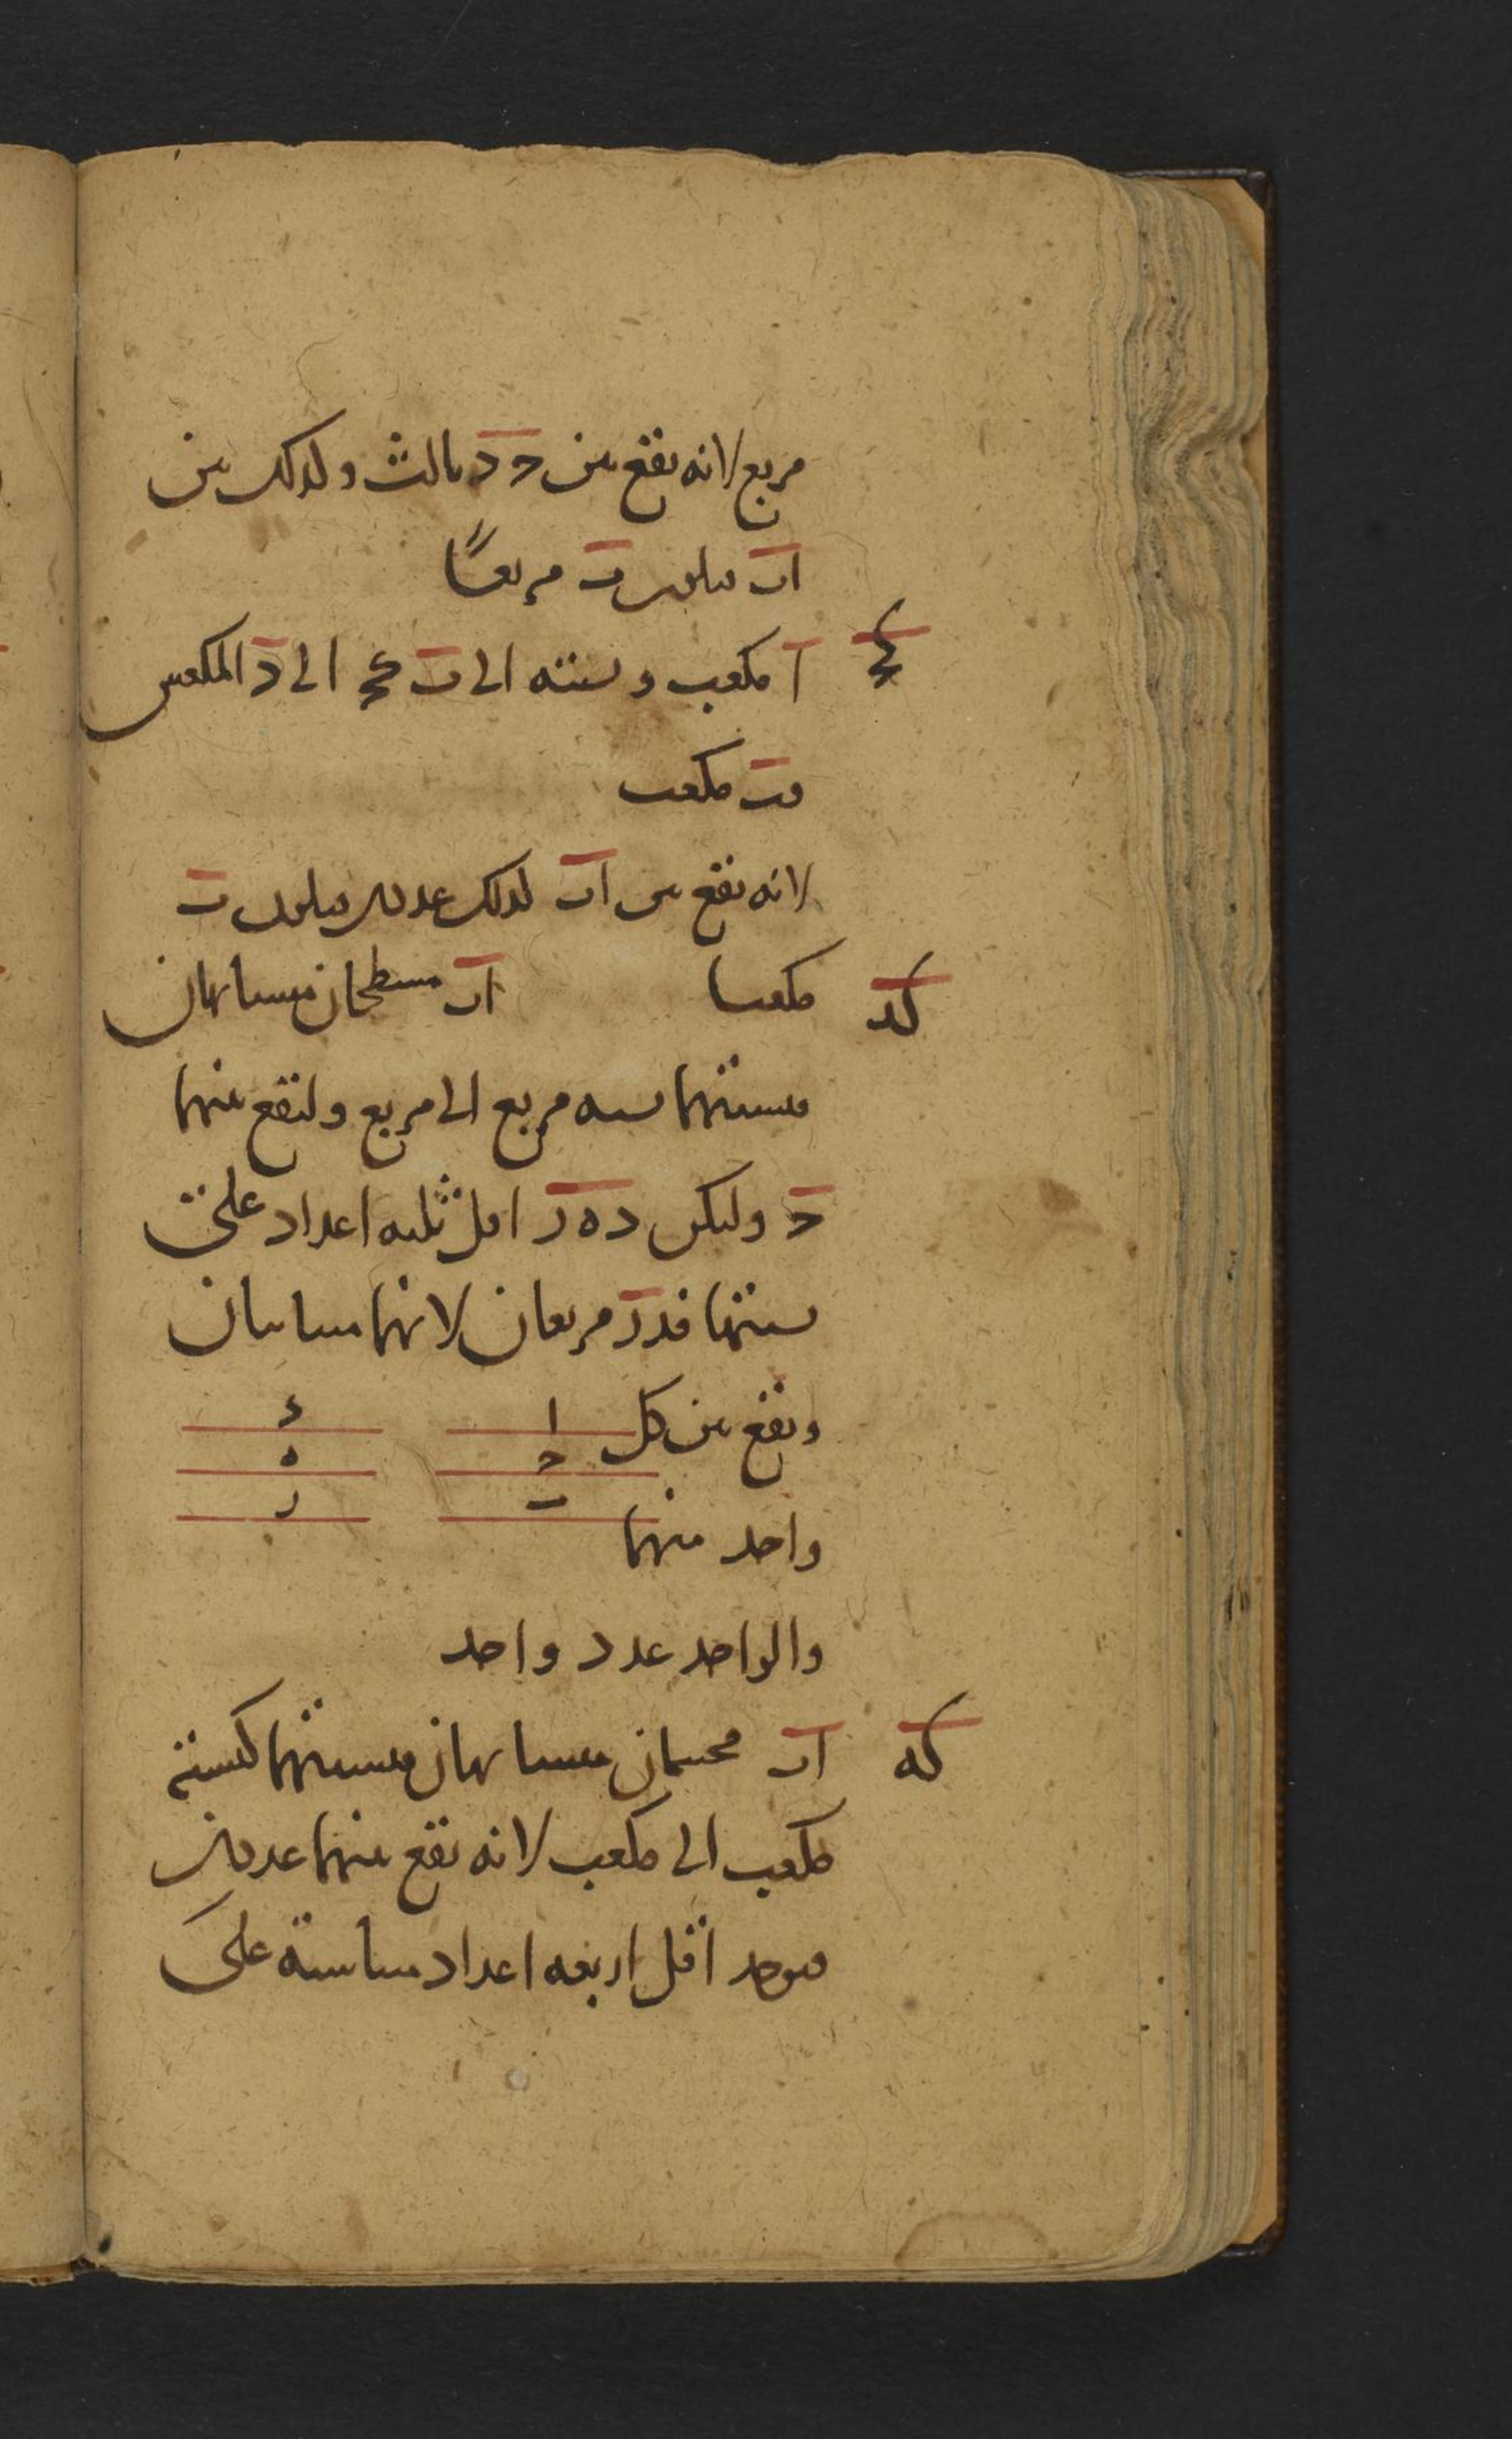 مربع لانه يقع بين ح د ثالث وكذلك بين
ا ب فيكون ب مربعًا
كج ا مكعب ونسبته الى ب كح الى د المكعبين
فب مكعب
لانه يقع بين ا ب كذلك عددين فيكون ب
مكعبا كد ا ب مسطحان متشابهان
فنسبتهما نسبة مربع الى مربع وليقع بينهما
ح وليكن د ه ر اقل ثلثه اعداد على
نسبتها فد ر مربعان لانهما متباينان
ويقع بين كل
ا د
ح ه
ب ر
واحد منهما
والواحد عدد واحد
كه ا ب مجسمان متشابهان فنسبتهما كنسبة
مكعب الى مكعب لانه يقع بينهما عددين
فيوجد اقل اربعه اعداد متناسبة على